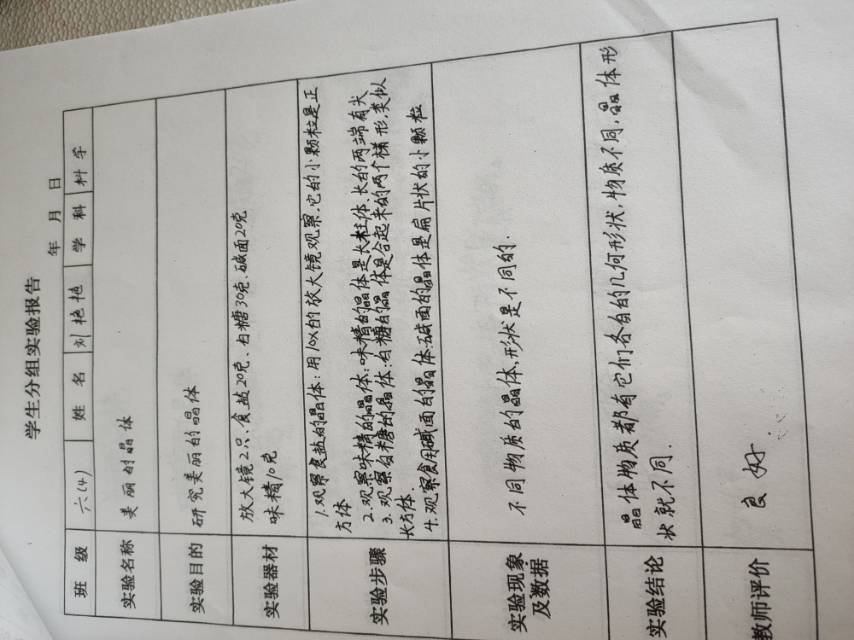 学生分组实验报告
年 月 日
班 级 六(4) 姓 名 刘艳艳 学 科 科学
实验名称 美丽的晶体
实验目的 研究美丽的晶体
实验器材 放大镜2只、食盐20克、白糖30克、碱面20克
味精10克
实验步骤 1.观察食盐的晶体:用10x的放大镜观察,它的小颗粒是正
方体
2.观察味精的晶体:味精的晶体是长柱体,长的两端有尖
3.观察白糖的晶体:白糖的晶体是合起来的两个梯形,类似
长方体
4.观察食用碱面的晶体:碱面的晶体是扁片状的小颗粒
实验现象
及数据 不同物质的晶体,形状是不同的.
实验结论 晶体物质都有它们各自的几何形状,物质不同,晶体形
状就不同.
教师评价 良好.